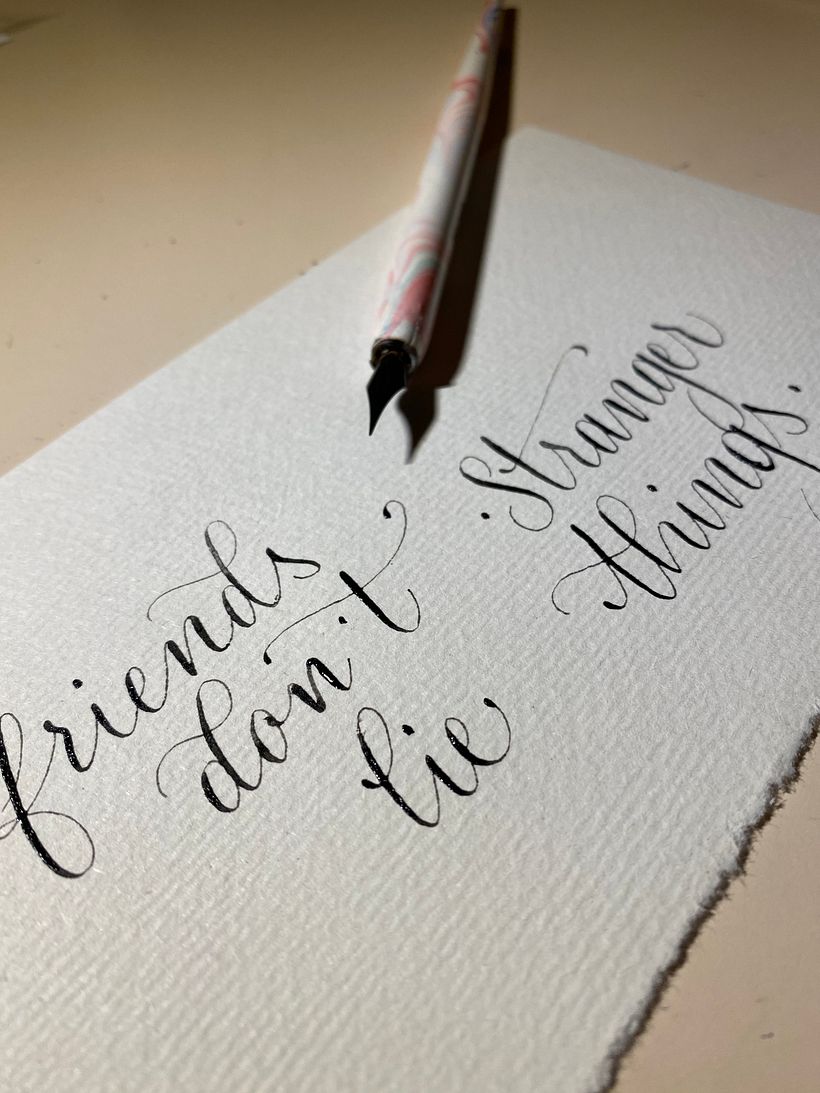 friends
don't
lie
.Stranger
things.